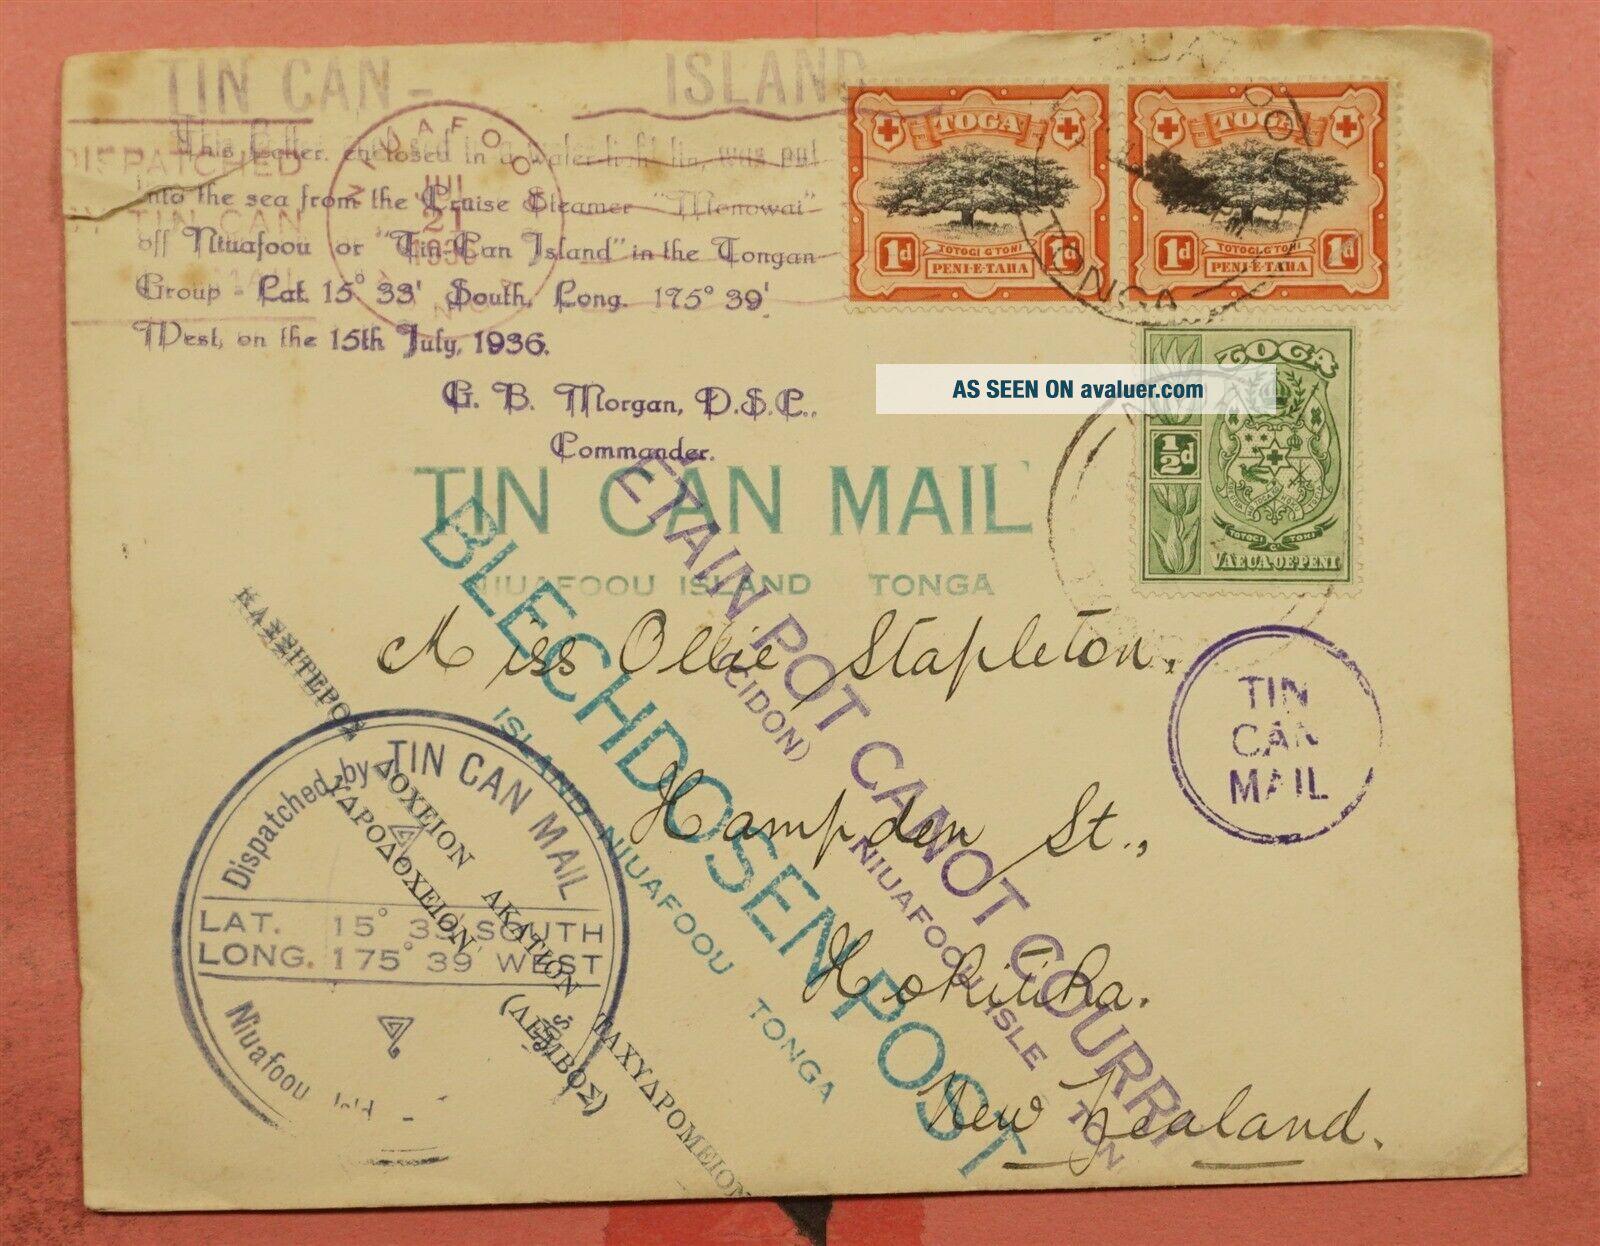 TIN CAN - ISLAND
This letter, enclosed in a water-tight tin, was put
into the sea from the Cruise Steamer "Monowai"
off Niuafoou or "Tin-Can Island" in the Tongan
Group - Lat. 15° 33' South, Long. 175° 39'
West, on the 15th July, 1936.
G. B. Morgan, D.S.C.,
Commander.
DISPATCHED
TIN CAN
MAIL
NIUAFOOU
JUL
21
TONGA
TOGA
1d 1d
TOTOGI G TOHI
PENI-E-TAHA
TOGA
1d 1d
TOTOGI G TOHI
PENI-E-TAHA
TONGA
TOGA
½d
TOTOGI G TOHI
VAEUA-OE-PENI
AS SEEN ON avaluer.com
TIN CAN MAIL
NIUAFOOU ISLAND TONGA
ETAIN POT CANOT COURRI
(CIDON)
NIUAFOOU ISLE TON
BLECHDOSEN POST
ISLAND NIUAFOOU TONGA
Miss Ollie Stapleton.
Hampden St.,
Hokitika.
New Zealand.
TIN
CAN
MAIL
ΚΑΣΣΙΤΕΡΟΣ ΔΟΧΕΙΟΝ ΑΚΑΤΙΟΝ ΤΑΧΥΔΡΟΜΕΙΟΝ
ΥΔΡΟΔΟΧΕΙΟΝ (ΛΕΜΒΟΣ)
Dispatched by TIN CAN MAIL
LAT. 15° 33' SOUTH
LONG. 175° 39' WEST
Niuafoou Isld